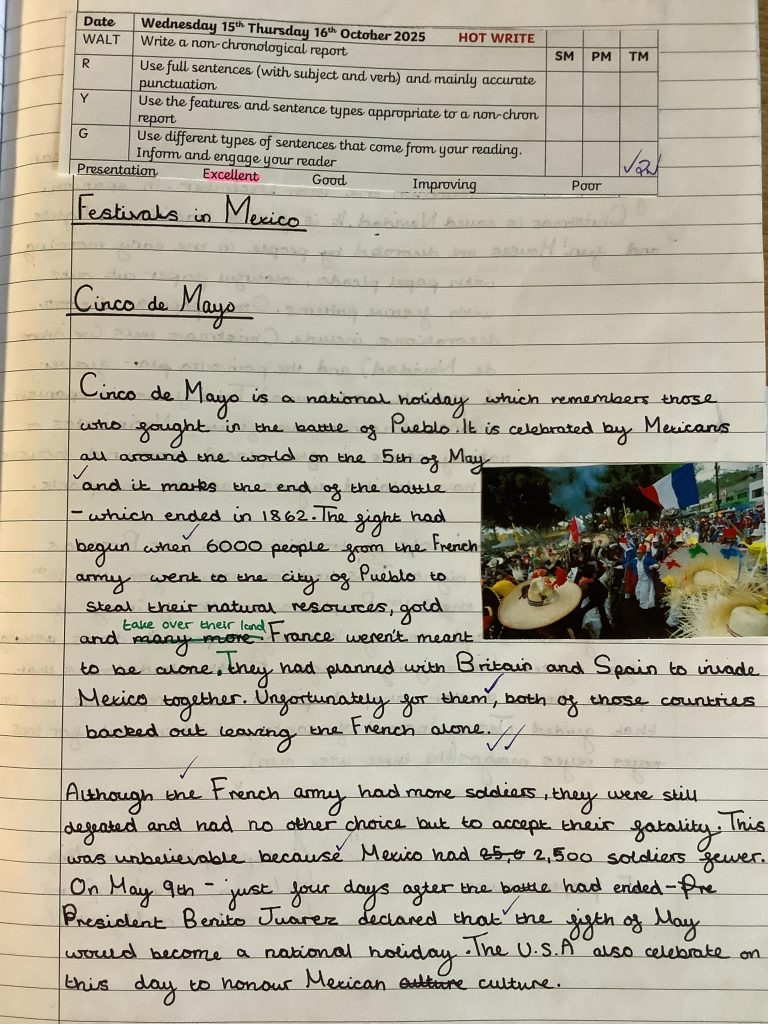 Date Wednesday 15th Thursday 16th October 2025 HOT WRITE
WALT Write a non-chronological report SM PM TM
R Use full sentences (with subject and verb) and mainly accurate
punctuation
Y Use the features and sentence types appropriate to a non-chron
report
G Use different types of sentences that come from your reading.
Inform and engage your reader
Presentation Excellent Good Improving Poor
Festivals in Mexico
Cinco de Mayo
Cinco de Mayo is a national holiday which remembers those
who fought in the battle of Pueblo. It is celebrated by Mexicans
all around the world on the 5th of May
and it marks the end of the battle
- which ended in 1862. The fight had
begun when 6000 people from the French
army went to the city of Pueblo to
steal their natural resources, gold
take over their land
and many more. France weren't meant
to be alone. They had planned with Britain and Spain to invade
Mexico together. Unfortunately for them, both of those countries
backed out leaving the French alone.
Although the French army had more soldiers, they were still
defeated and had no other choice but to accept their fatality. This
was unbelievable because Mexico had 25,0 2,500 soldiers fewer.
On May 9th - just four days after the battle had ended - Pre
President Benito Juarez declared that the fifth of May
would become a national holiday. The U.S.A also celebrate on
this day to honour Mexican culture.